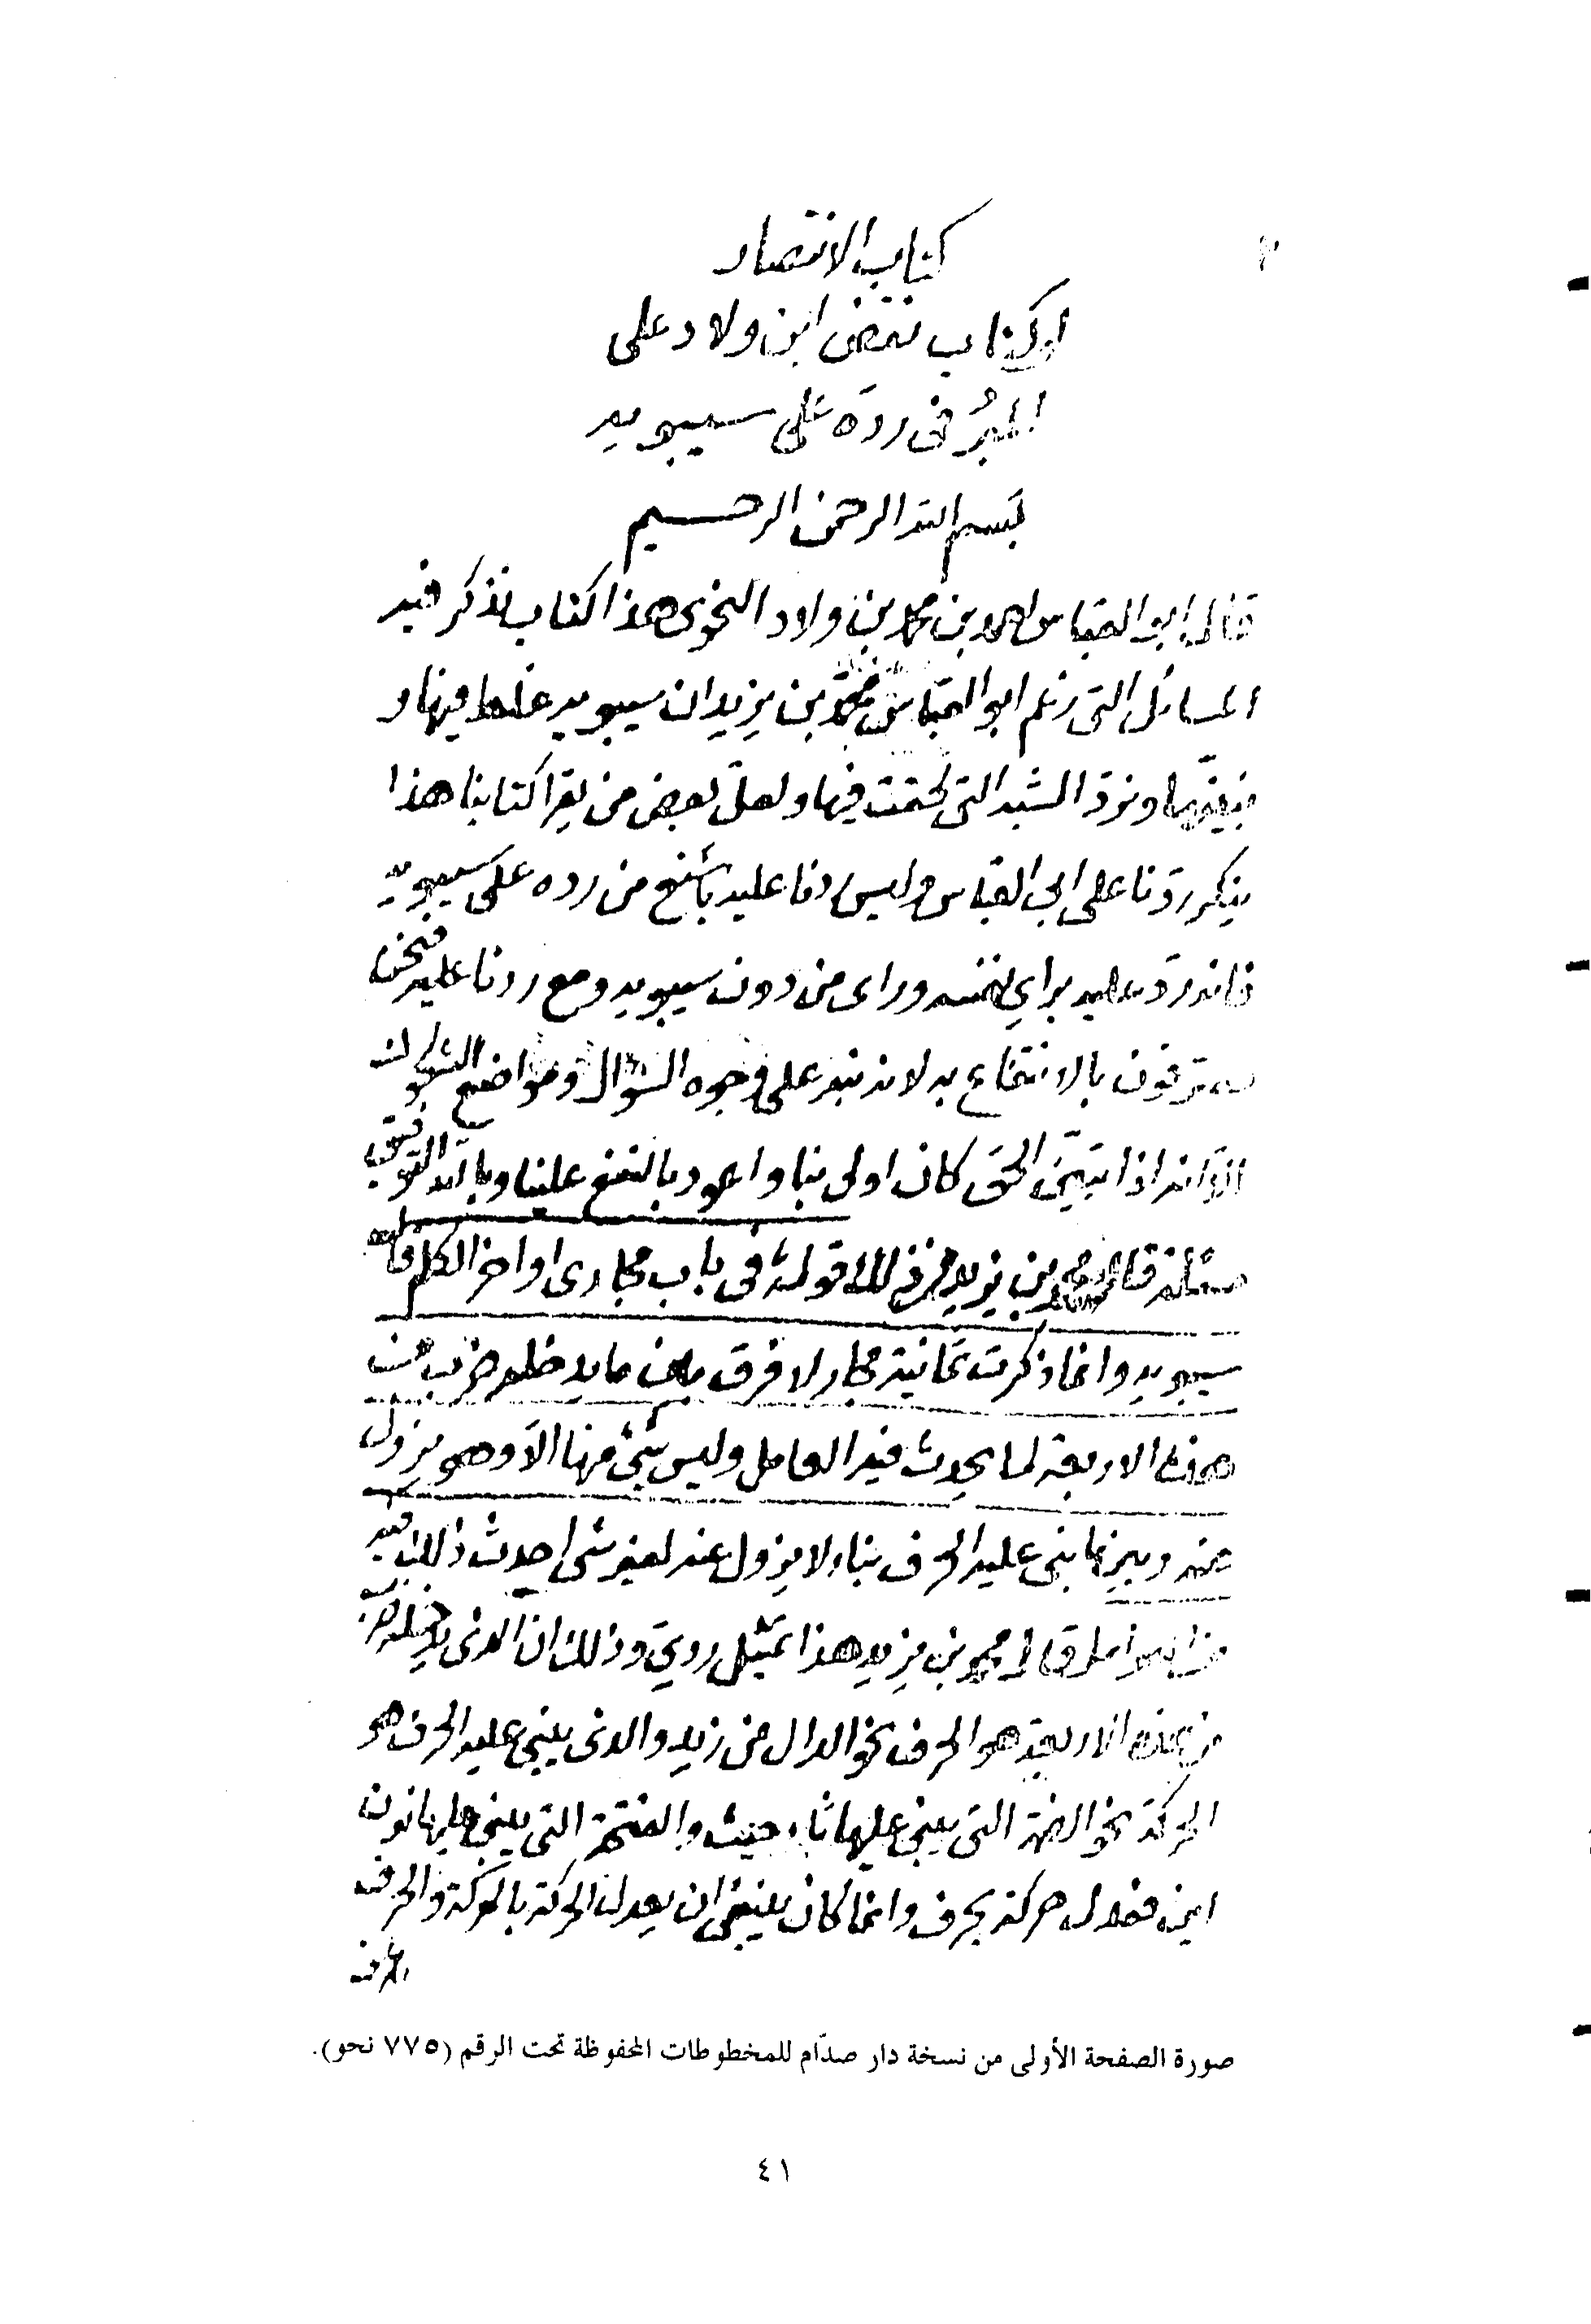 كتاب الانتصار
او كتاب نقض ابن ولاد على
المبرد فى ردّه على سيبويه
بسم الله الرحمن الرحيم
قال ابو العباس احمد بن محمد بن ولاد النحوى هذا كتاب نذكر فيه
المسائل التى زعم ابو العباس محمد بن يزيد ان سيبويه غلط فيها و
نبيّنها ونردّ الشبه التى لحقت فيها ولعلّ بعض من يقرا كتابنا هذا
ينكر ردّنا على ابى العباس وليس ردنا عليه باشنع من رده على سيبويه
فانه ردّ عليه براى نفسه وراى من دون سيبويه ومع ردنا عليه فنحن
معترفون بالانتفاع به لانه نبه على وجوه السؤال ومواضع الشكوك
الاّ انه اذا تبيّن الحق كان اولى بنا واعود بالنفع علينا وبالله التوفيق
مسئلة قال محمد بن يزيد فمن ذلك قوله فى باب مجارى اواخر الكلم قال
سيبويه وانما ذكرت ثمانية مجار لا فرق بين ما يدخله ضرب من
هذه الاربعة لما يحدث فيه العامل وليس شئ منها الاّ وهو يزول
عنه وبين ما بنى عليه الحرف بناء لا يزول عنه لغير شئ احدث ذلك فيه
من العوامل قال محمد بن يزيد هذا تمثيل ردئ وذلك ان الذى يدخله ضرب
من هذه الاربعة هو الحرف نحو الدال من زيد والذى يبنى عليه الحرف هو
الحركة نحو الضمة التى يبنى عليها ثاء حيث والفتحة التى يبنى عليها نون
اين فعدل حركة بحرف وانما كان ينبغى ان يعدل الحركة بالحركة والحرف
بالحرف
صورة الصفحة الأولى من نسخة دار صدّام للمخطوطات المحفوظة تحت الرقم (٧٧٥ نحو).
٤١